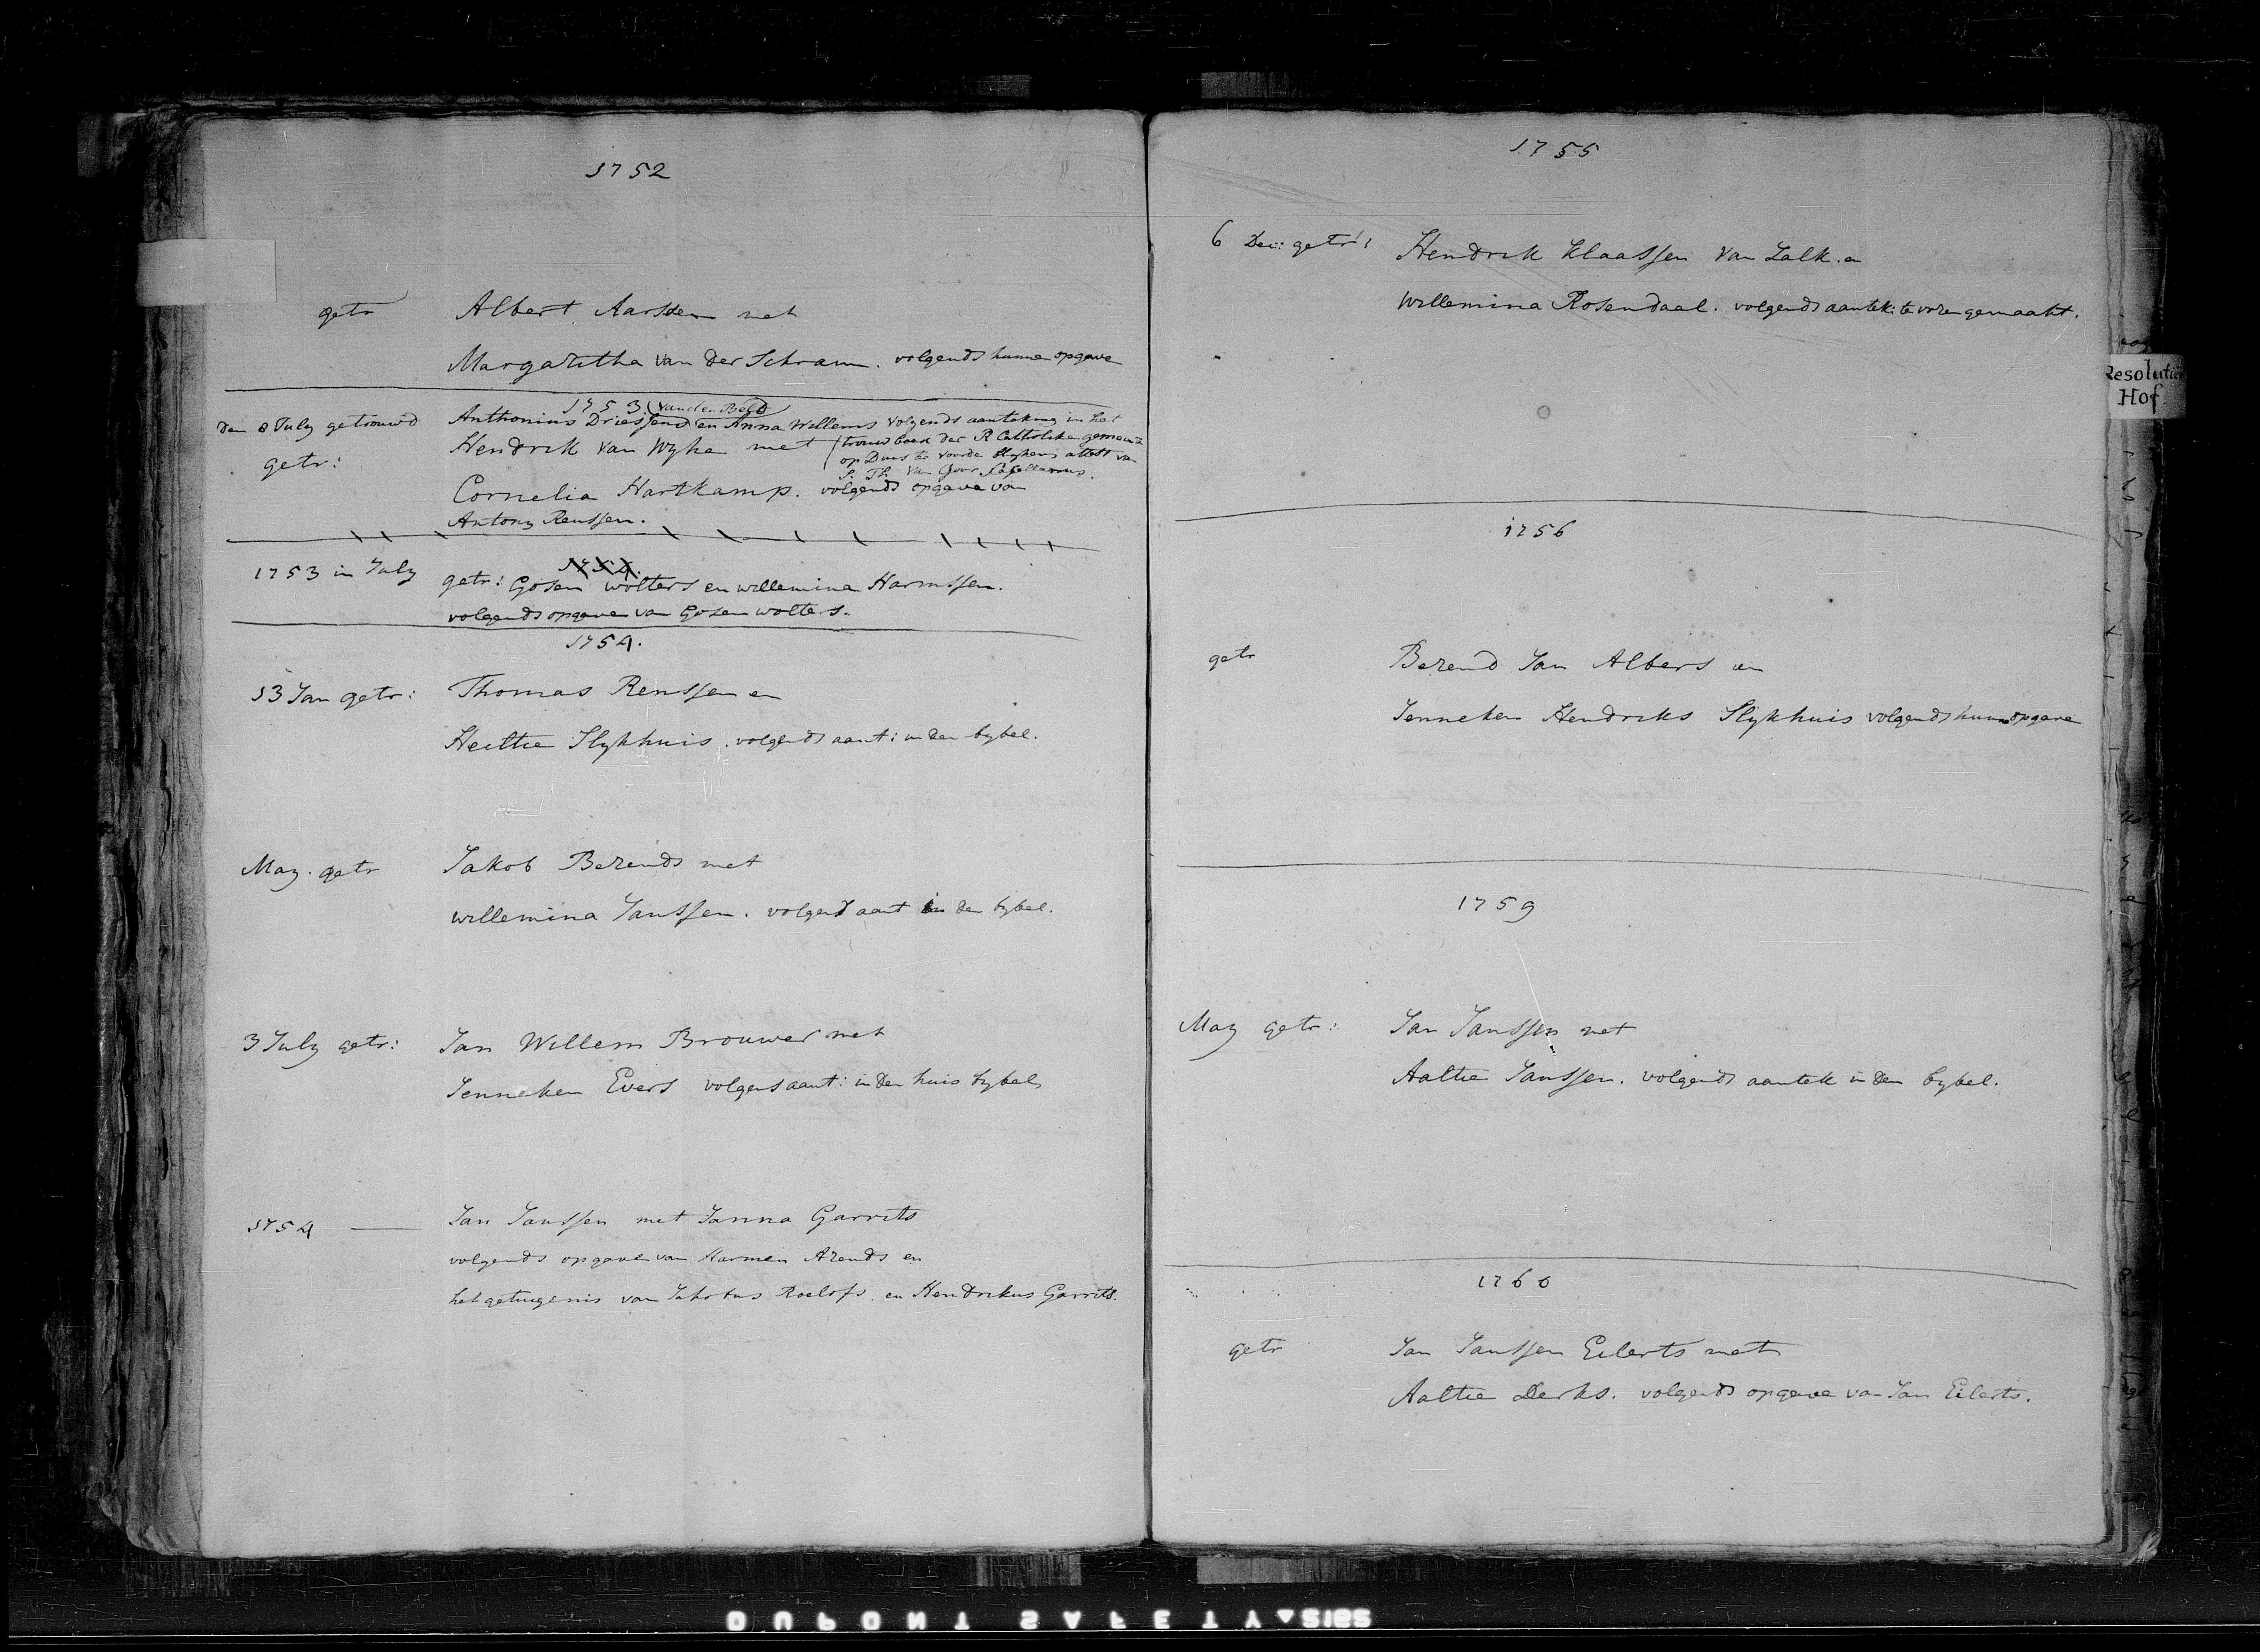 1752
getr Albert Aarssen met
Margaretha van der Schram. volgends hunne opgave
1753 (van den Beld)
den 8 July getrouwd Anthonius Driessens en Anna Willems volgends aantekning in het
trouwboek der R Catholike gemeinte
op Duis ter voorde blykens attest van
S. Th. van Goor Sacellanus.
getr: Hendrik van Wyhe met
Cornelia Hartkamp. volgends opgave van
Antony Renssen.
1754.
1753 in July getr: Gosen Wolters en willemina Harmssen.
volgends opgave van Gosen Wolters.
1754.
13 Jan getr: Thomas Renssen en
Heiltie Slykhuis. volgends aant: in den bybel.
May. getr Jakob Berends met
willemina Janssen. volgens aant in den bybel.
3 July getr: Jan Willem Brouwer met
Jenneken Evers volgens aant: in den huis bybel
1754 — Jan Janssen met Janna Garrits
volgends opgave van Harmen Arends en
het getuigenis van Jakobus Roelofs. en Hendrikus Garrits.
1755
6 Dec: getr: Hendrik Klaassen van Zalk. en
Willemina Rosendaal. volgends aantek: te voren gemaakt.
1756
getr Berend Jan Albers en
Jenneken Hendriks Slykhuis volgends hunne opgave
1759
May getr: Jan Janssen met
Aaltie Janssen. volgends aantek in den bybel.
1760
getr Jan Janssen Eilerts met
Aaltie Derks. volgends opgave van Jan Eilerts.
Resolutiën
Hof